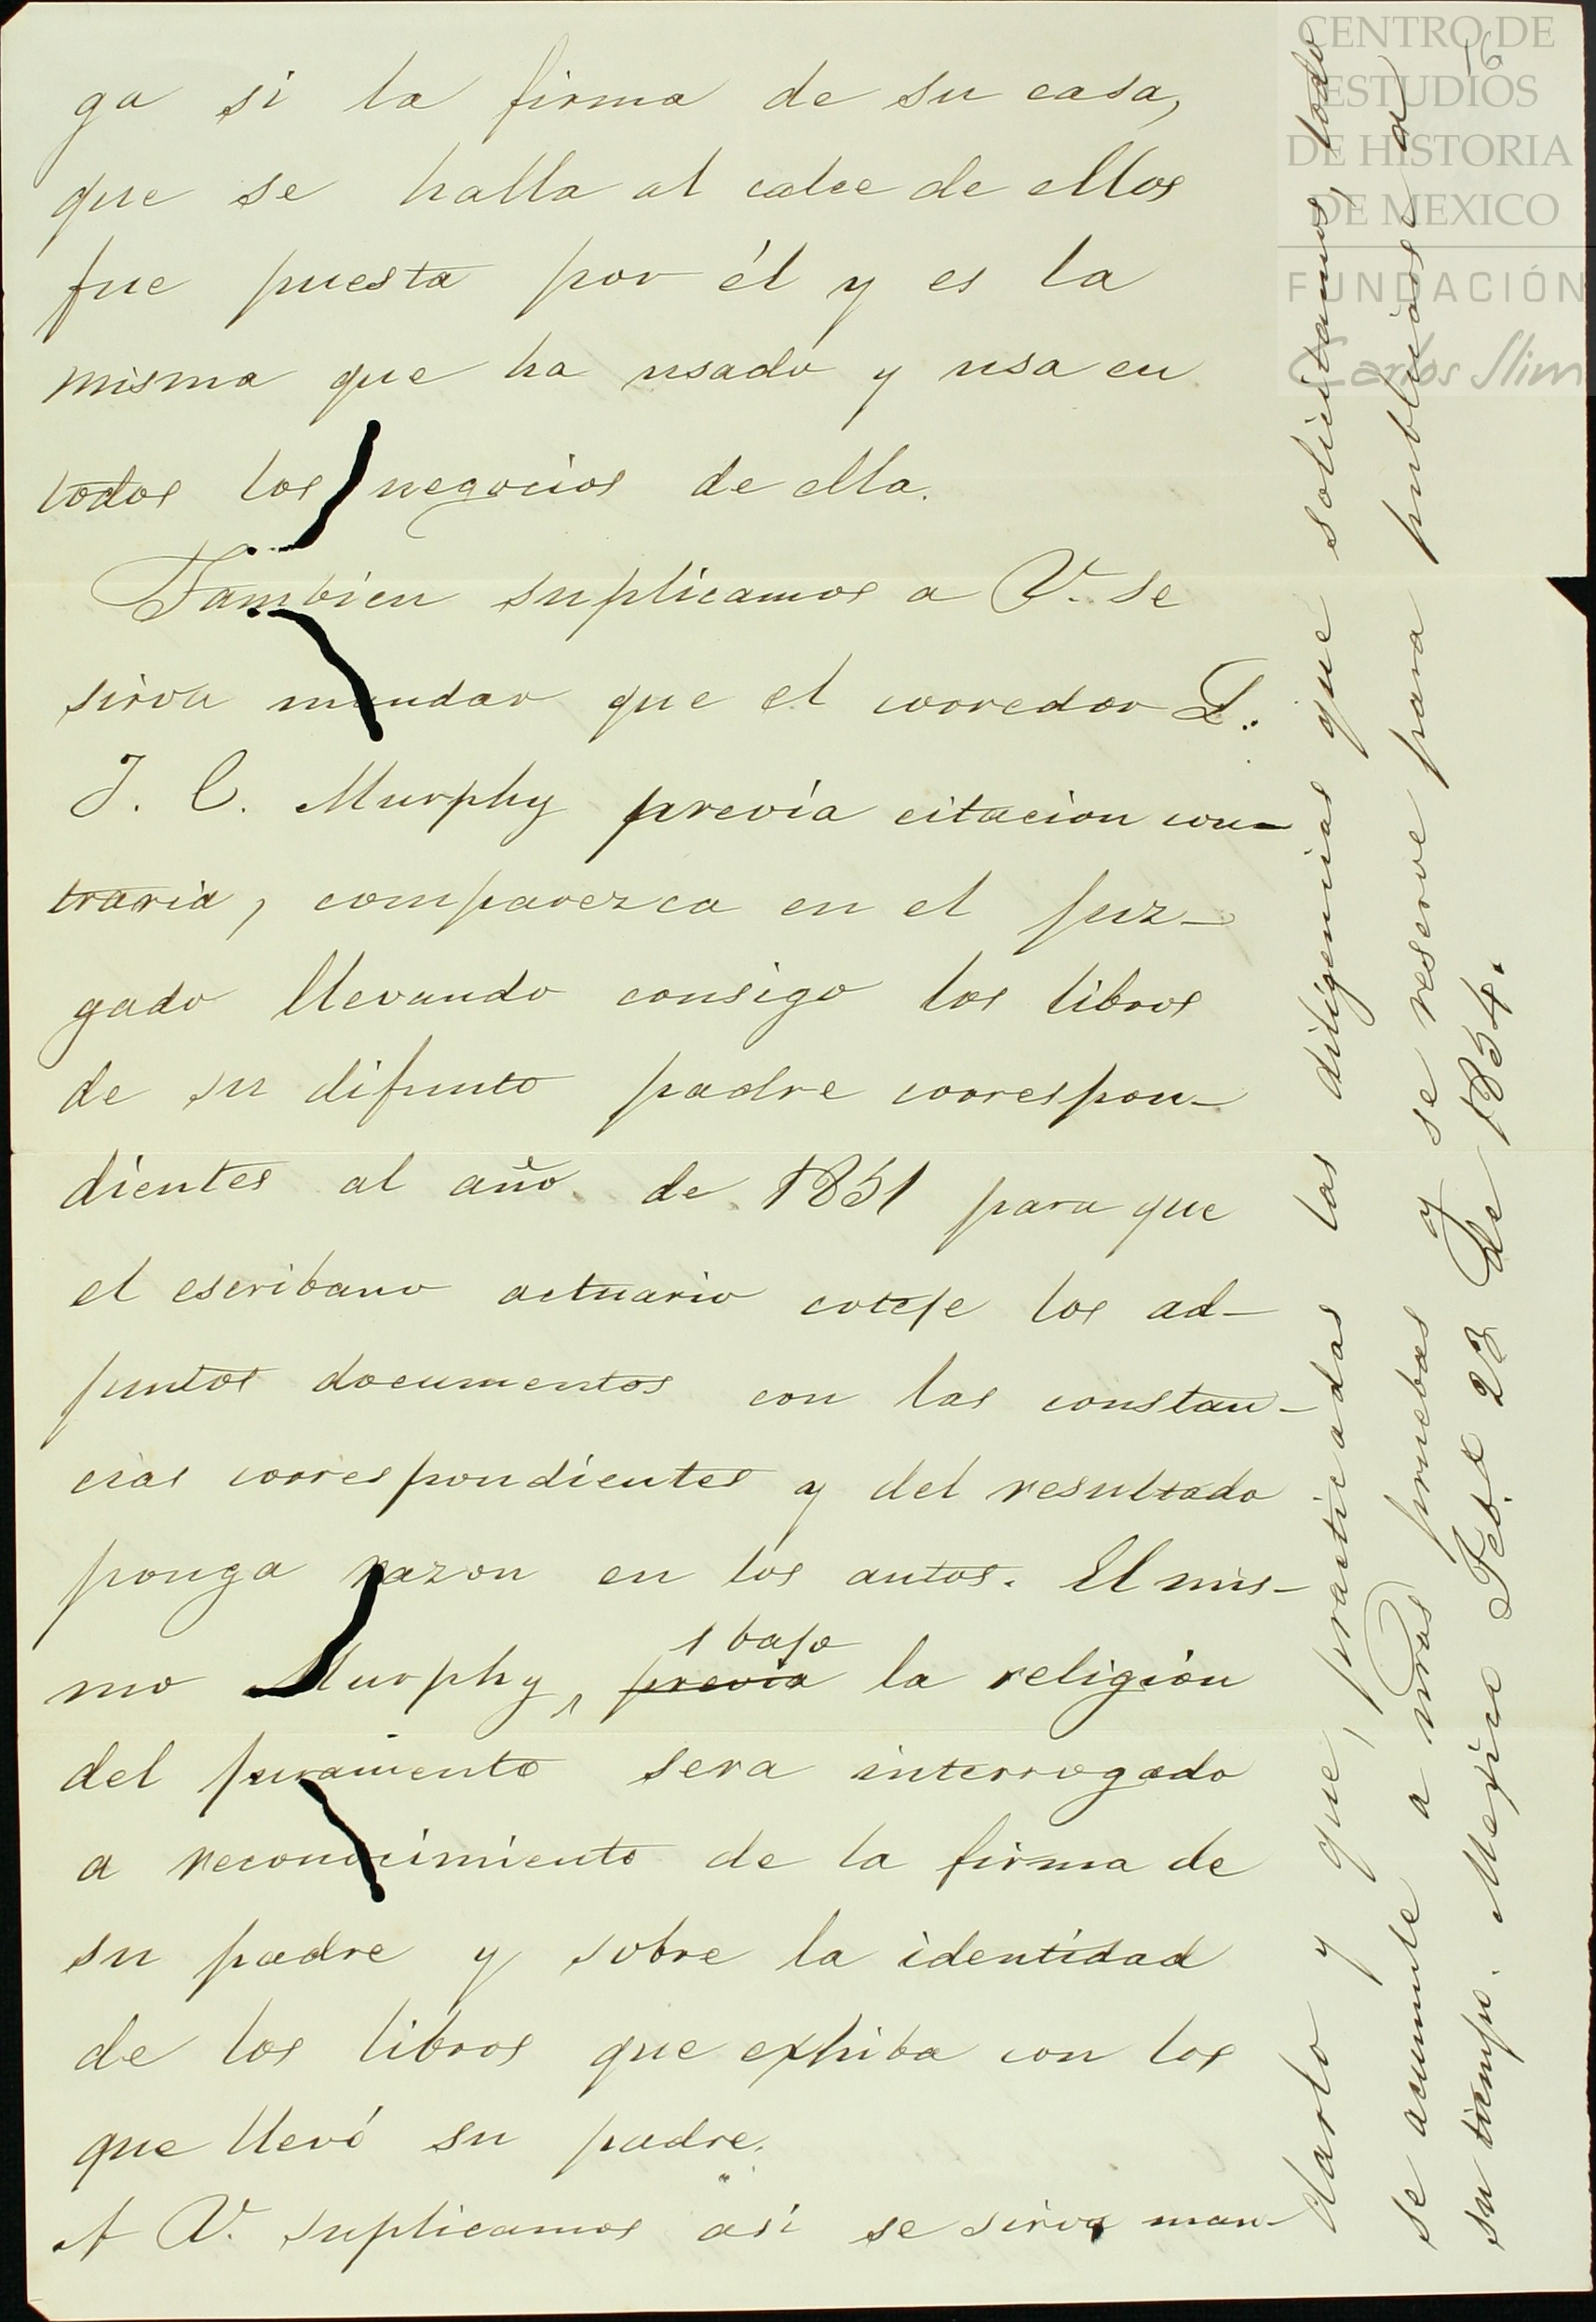 ga si la firma de su casa,
que se halla al calce de ellos
fue puesta por él y es la
misma que ha usado y usa en
todos los negocios de ella.
Tambien suplicamos a V. se
sirva mandar que el corredor D.
J. C. Murphy previa citacion con-
traria, comparezca en el juz-
gado llevando consigo los libros
de su difunto padre correspon-
dientes al año de 1851 para que
el escribano actuario coteje los ad-
juntos documentos con las constan-
cias correspondientes y del resultado
ponga razon en los autos. El mis-
1 bajo
mo Murphy, previa la religión
del juramento sera interrogado
a reconocimiento de la firma de
su padre y sobre la identidad
de los libros que exhiba con los
que llevó su padre.
A V. suplicamos así se sirva man-
darlo y que, practicadas las diligencias que solicitamos, todo
se acumule a nras pruebas y se reserve para publicarse a
su tiempo. Mexico Feb. 23 de 1854.
16
CENTRO DE
ESTUDIOS
DE HISTORIA
DE MEXICO
FUNDACIÓN
Carlos Slim